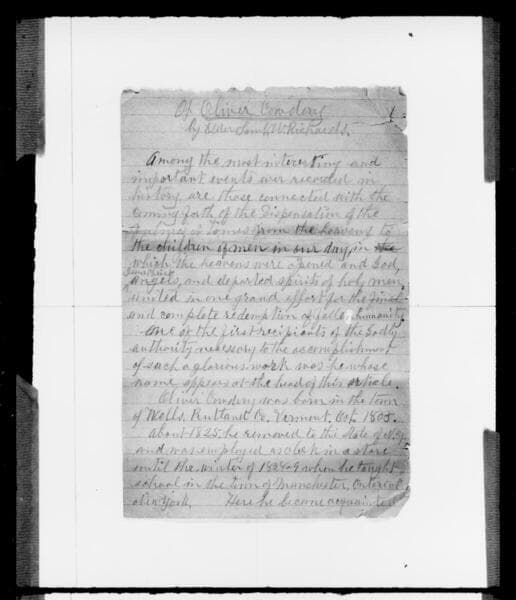 Of Oliver Cowdery 1
by Elder Saml W. Richards.
Among the most noteworthy and
important events ever recorded in
history are those connected with the
coming forth of the Dispensation of the
fulness of times from the heavens to
the children of men in our day, in the
which the heavens were opened and God,
Jesus Christ
angels, and departed spirits of holy men,
united in one grand effort for the final
and complete redemption of fallen humanity.
One of the first recipients of the Godly
authority necessary to the accomplishment
of such a glorious work was he whose
name appears at the head of this article.
Oliver Cowdery was born in the town
of Wells, Rutland Co. Vermont, Oct. 1805.
About 1825, he removed to the State of N.Y.
and was employed as clerk in a store
until the winter of 1828-9 when he taught
school in the town of Manchester, Ontario Co
New York. Here he became acquainted